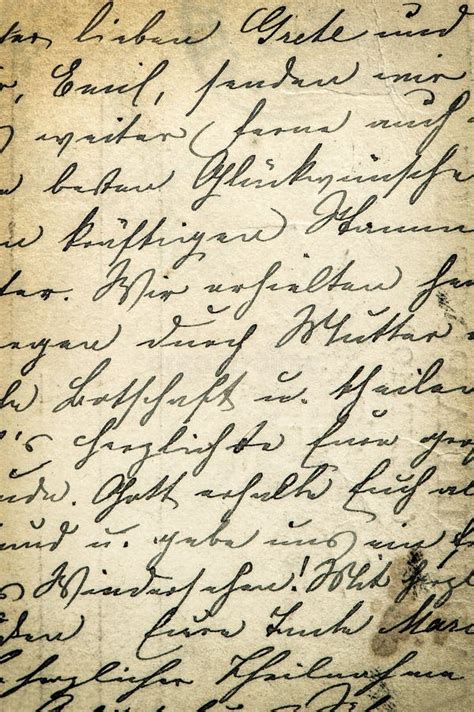 ter lieben Grete und
, Emil, senden wir
weiter ferne auch
n besten Glückwünsche
n kräftigen Stamm
ter. Wir erhielten
gen durch Mutter
Botschaft u. theilen
's herzlichste Eure
ude. Gott erhalte Euch al
und u. gebe uns ein
s Wiedersehen! Mit herzl
Eure Tante Mari
herzlicher Theilnahme